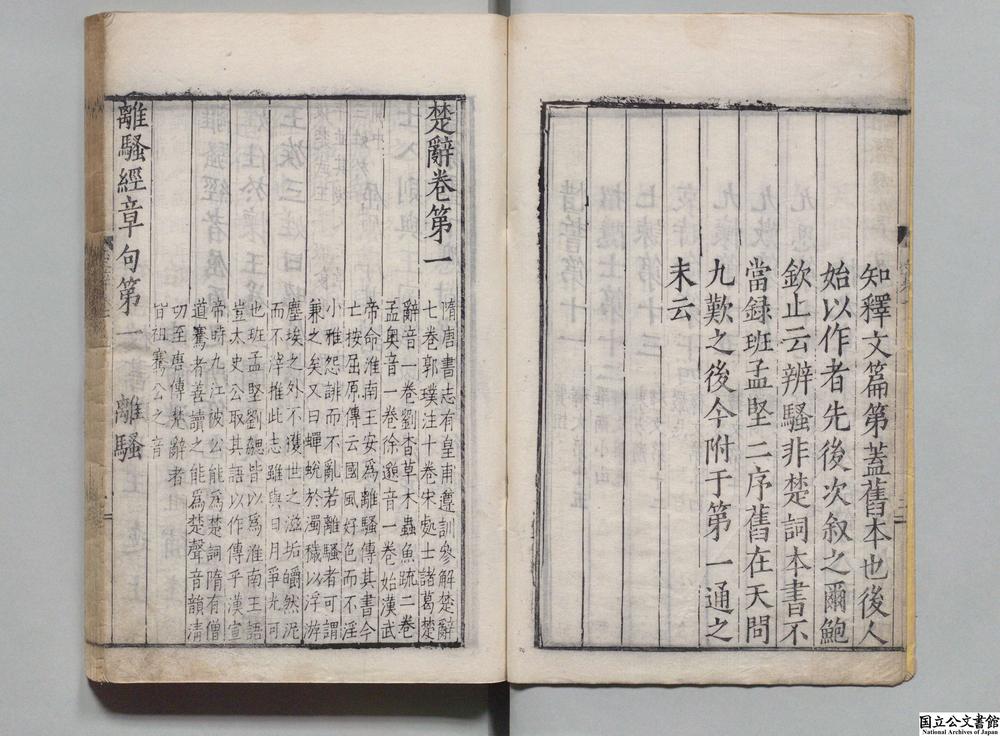 知釋文篇第蓋舊本也後人
始以作者先後次叙之爾鮑
欽止云辨騷非楚詞本書不
當録班孟堅二序舊在天問
九歎之後今附于第一通之
末云
楚辭卷第一
隋唐書志有皇甫遵訓參解楚辭
七卷郭璞注十卷宋處士諸葛楚
辭音一卷劉杳草木蟲魚疏二卷
孟奥音一卷徐邈音一卷始漢武
帝命淮南王安為離騷傳其書今
亡按屈原傳云國風好色而不淫
小雅怨誹而不亂若離騷者可謂
兼之矣又曰蟬蛻於濁穢以浮游
塵埃之外不獲世之滋垢皭然泥
而不滓推此志雖與日月爭光可
也班孟堅劉勰皆以為淮南王語
豈太史公取其語以作傳乎漢宣
帝時九江被公能為楚詞隋有僧
道騫者善讀之能為楚聲音韻清
切至唐傳楚辭者
皆祖騫公之音
離騷經章句第一 離騷
国立公文書館
National Archives of Japan